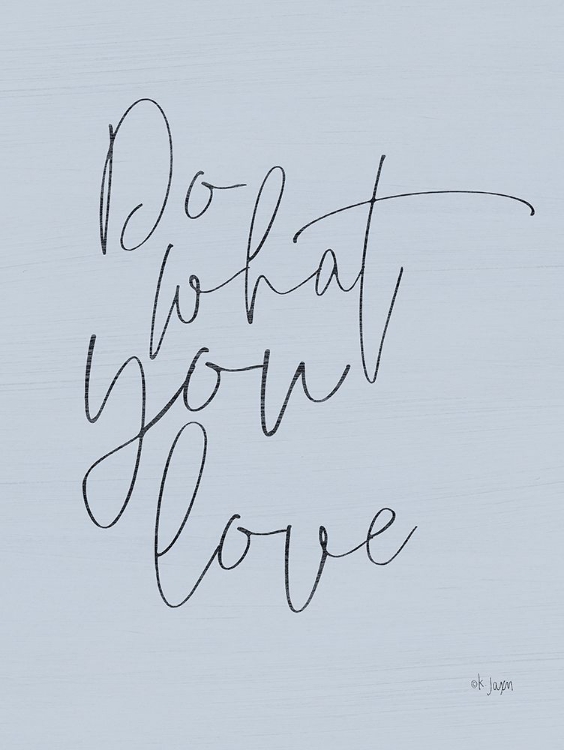 Do
what
you
love
©K Jaxn